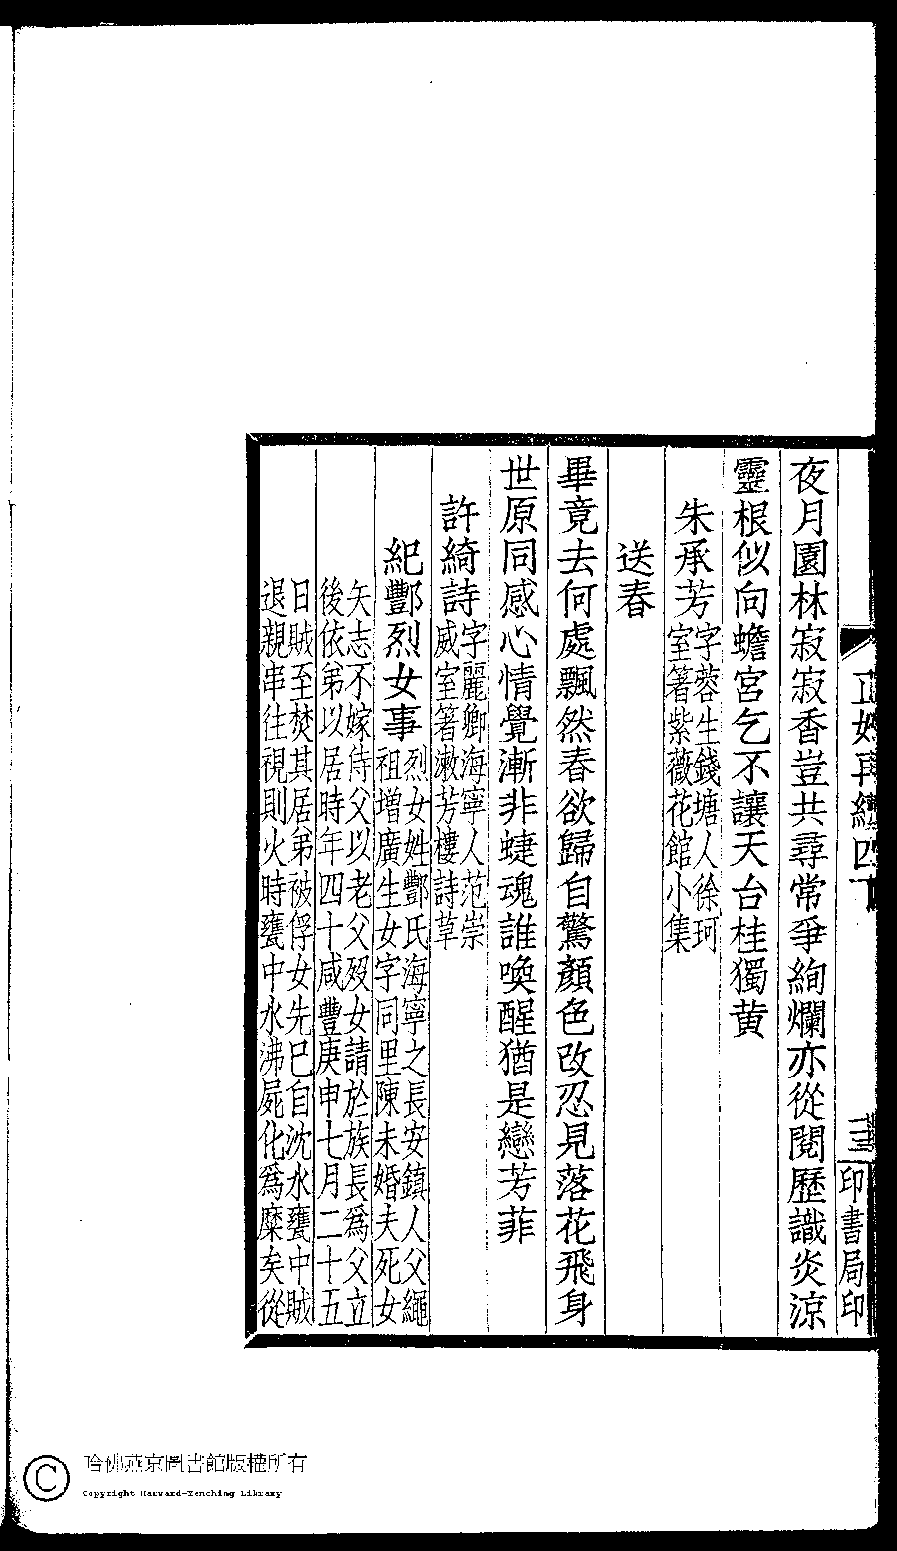 夜月園林寂寂香豈共尋常爭絢爛亦從閱歷識炎涼
靈根似向蟾宮乞不讓天台桂獨黄
朱承芳
字蓉生錢塘人徐珂
室箸紫薇花館小集
送春
畢竟去何處飄然春欲歸自驚顏色改忍見落花飛身
世原同感心情覺漸非蜨魂誰喚醒猶是戀芳菲
許綺詩
字麗卿海寧人范崇
威室箸漱芳樓詩草
紀酆烈女事
烈女姓酆氏海寧之長安鎮人父繩
祖增廣生女字同里陳未婚夫死女
矢志不嫁侍父以老父歿女請於族長爲父立
後依弟以居時年四十咸豐庚申七月二十五
日賊至焚其居弟被俘女先巳自沈水甕中賊
退親串往視則火時甕中水沸屍化爲糜矣從
正始再續四下
印書局印
哈佛燕京圖書館版權所有
Copyright Harvard-Yenching Library